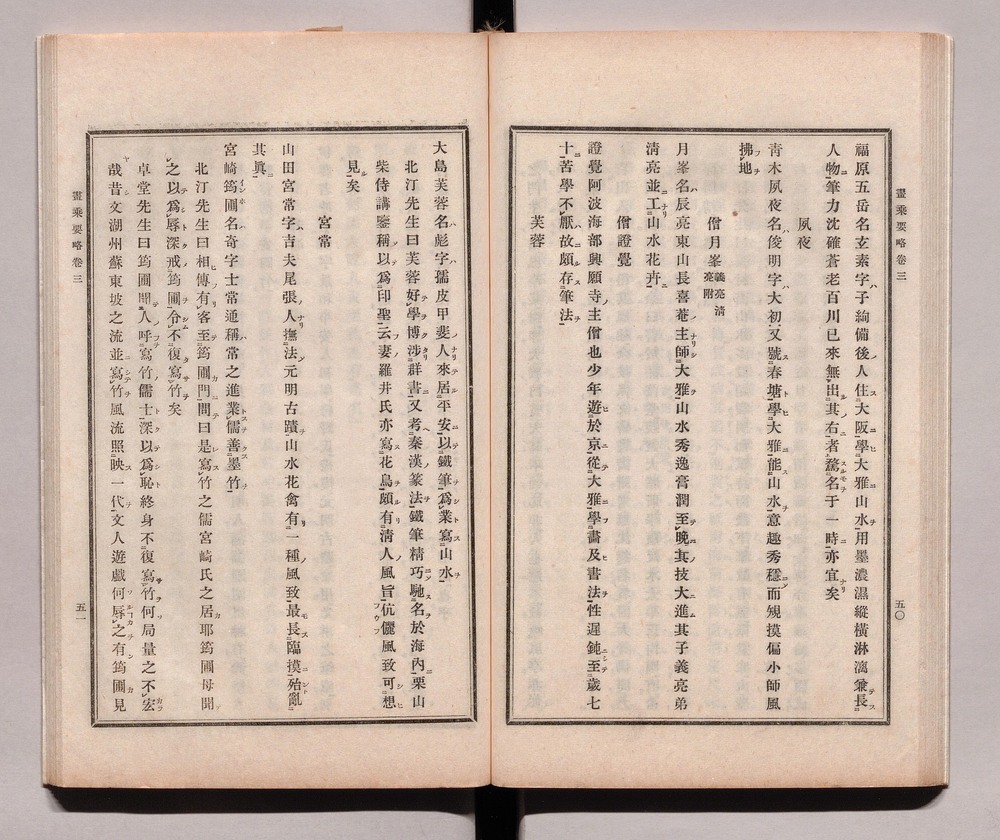 畫乘要略卷三
五〇
福原五岳名玄素字子絢備後人住大阪學大雅山水用墨濃濕縱橫淋漓兼長
人物筆力沈確蒼老百川已來無出其右者鶩名于一時亦宜矣
夙夜
青木夙夜名俊明字大初又號春塘學大雅能山水意趣秀穩而規摸偏小師風
拂地
僧月峯義亮清亮附
月峯名辰亮東山長喜菴主師大雅山水秀逸膏潤至晩其技大進其子義亮弟
淸亮並工山水花卉
僧證覺
證覺阿波海部興願寺主僧也少年遊於京從大雅學畫及書法性遲鈍至歲七
十苦學不厭故頗存筆法
芙蓉
大島芙蓉名彪字孺皮甲斐人來居平安以鐵筆爲業寫山水
北汀先生曰芙蓉好學博涉群書又考秦漢篆法鐵筆精巧馳名於海內栗山
柴侍講鑒稱以爲印聖云妻羅井氏亦寫花鳥頗有淸人風旨伉儷風致可想
見矣
宮常
山田宮常字吉夫尾張人撫法元明古蹟山水花禽有一種風致最長臨摸殆亂
其眞
宮崎筠圃名奇字士常通稱常之進業儒善墨竹
北汀先生曰相傳有客至筠圃門問曰是寫竹之儒宮崎氏之居耶筠圃母聞
之以爲辱深戒筠圃令不復寫竹矣
卓堂先生曰筠圃聞人呼寫竹儒士深以爲恥終身不復寫竹何局量之不宏
哉昔文湖州蘇東坡之流並寫竹風流照映一代文人遊戲何辱之有筠圃見
畫乘要略卷三
五一